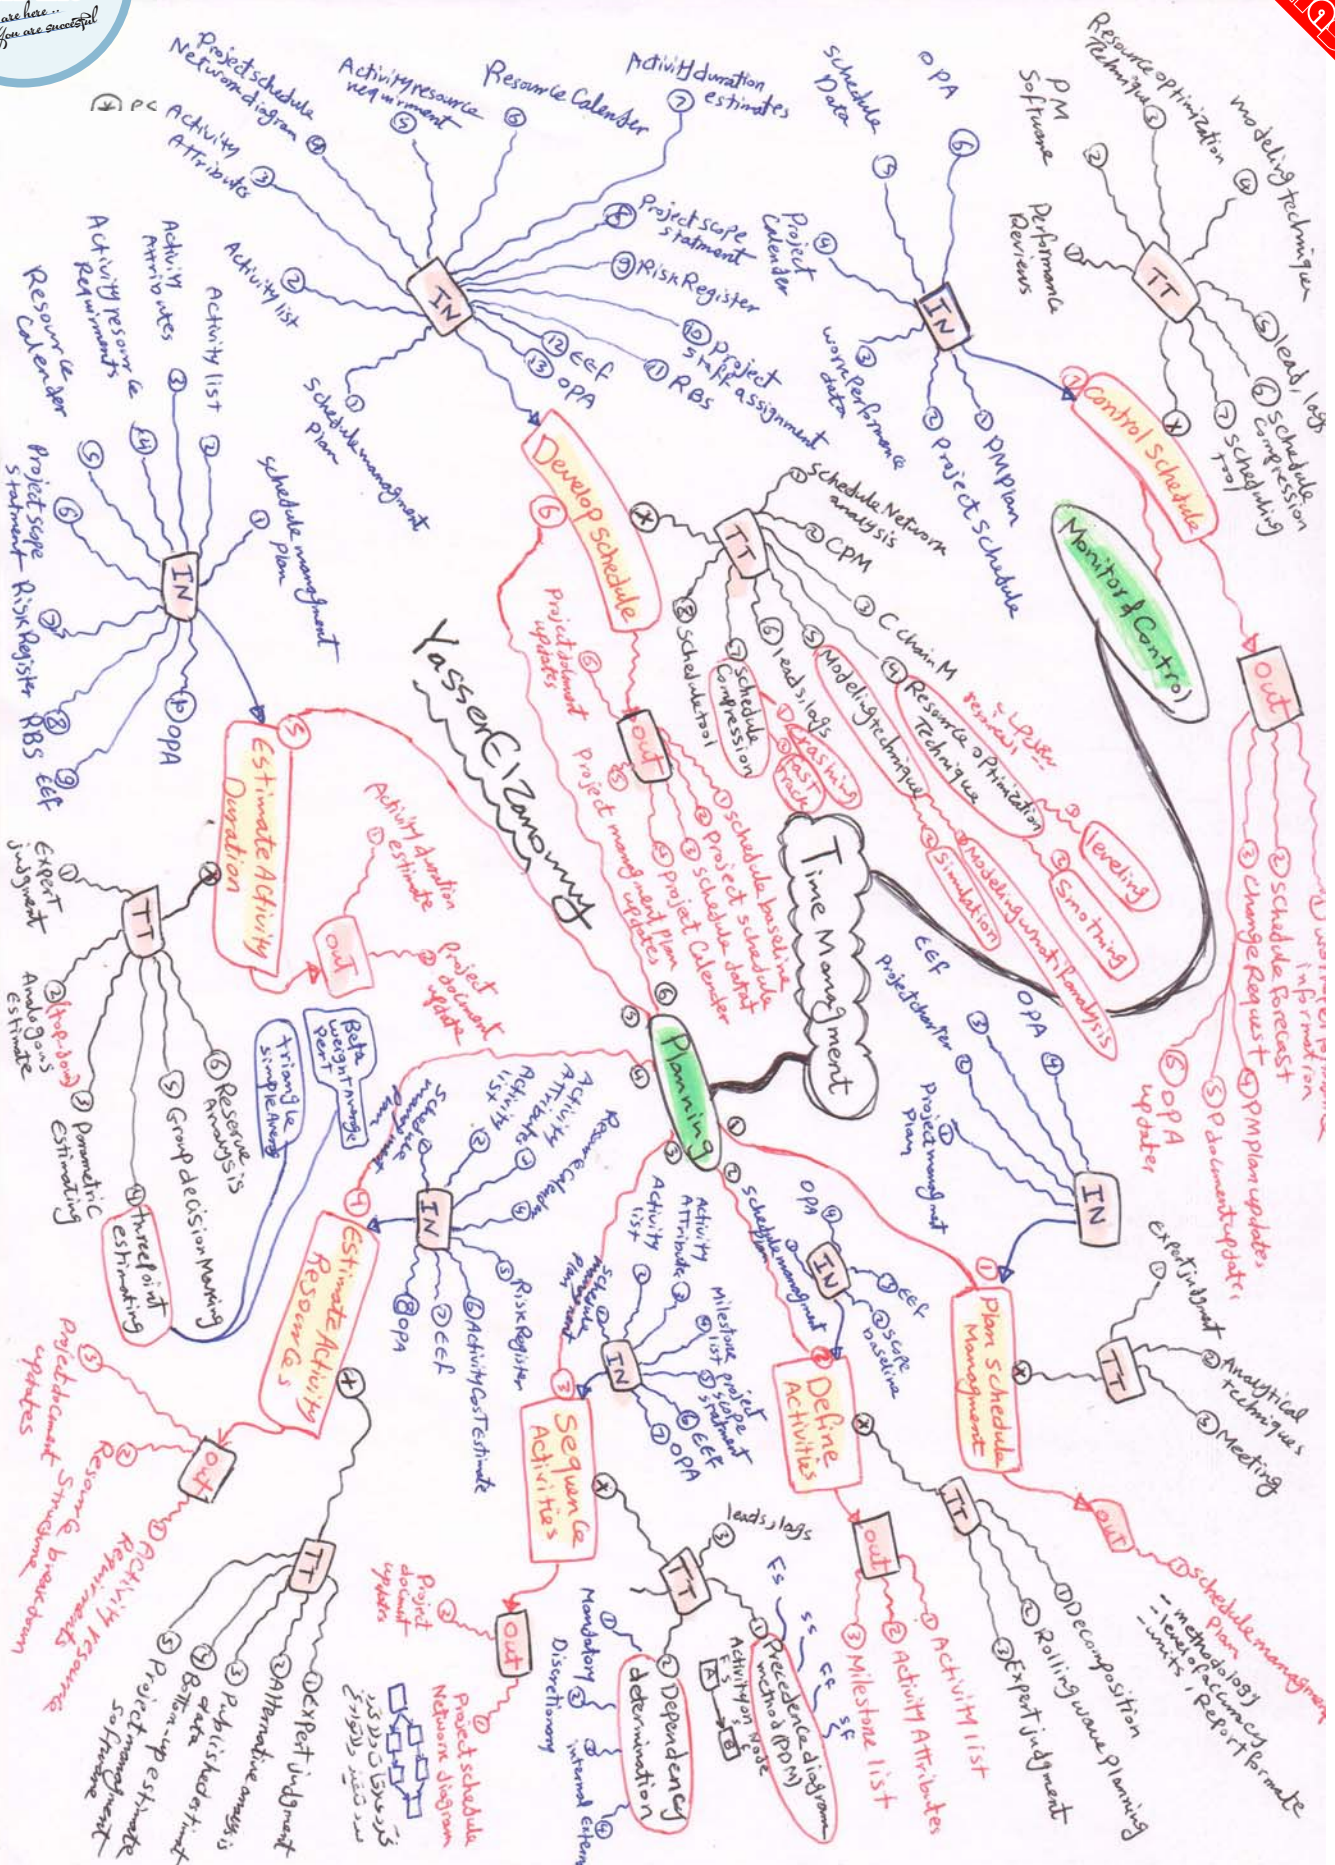 are here ..
You are succesful
Time Managment
Yasser ElZanomny
Monitor & Control
Planning
① ② ③ ④ ⑤ ⑥
① Plan Schedule
Managment
IN
① Project managment
Plan
② Project charter
③ EEF
④ OPA
TT
① Expert judgment
② Analytical
techniques
③ Meeting
out
① Schedule managment
Plan
- methodology
- level of accuracy
- units, Report formate
② Define
Activities
IN
① schedule managment
Plan
② scope
baseline
③ EEF
④ OPA
TT
① Decomposition
② Rolling wave planning
③ Expert judgment
out
① Activity list
② Activity Attributes
③ Milestone list
③ Sequence
Activities
IN
① schedule
managment
Plan
② Activity
list
③ Activity
Attribute
④ Milestone
list
⑤ project
scope
statment
⑥ EEF
⑦ OPA
TT
① Precedence diagram
method (PDM)
Activity on Node
FS
A
B
FS
SS
FF
SF
② Dependency
determination
① Mandatory
② Discretionary
③ internal
④ External
③ leads, lags
out
① Project schedule
Network diagram
② Project
document
updates
④ Estimate Activity
Resources
IN
① Schedule
Plan
② Activity
list
③ Activity
Attributes
④ Resource Calender
⑤ Risk Register
⑥ Activity Cost Estimate
⑦ EEF
⑧ OPA
TT
① Expert judgment
② Alternative analysis
③ Published estimat
data
④ Bottom-up estimate
⑤ Project managment
software
out
① Activity resource
Requirments
② Resource breakdown
Structure
③ Project document
updates
⑤ Estimate Activity
Duration
IN
① schedule managment
plan
② Activity list
③ Activity
Attributes
④ Activity resource
Requirments
⑤ Resource
Calender
⑥ Project scope
statment
⑦ Risk Register
⑧ RBS
⑨ EEF
⑩ OPA
TT
① Expert
judgment
② (top-down)
Analogous
Estimate
③ Parametric
Estimating
④ three point
estimating
triangle
simple Average
Beta
weight Average
Pert
⑤ Group decision Making
⑥ Reserve
Analysis
out
① Activity duration
estimate
② Project
document
update
⑥ Develop Schedule
IN
① Schedule managment
Plan
② Activity list
③ Activity
Attributes
④ Project schedule
Network diagram
⑤ Activity resource
requirment
⑥ Resource Calender
⑦ Activity duration
estimates
⑧ Project scope
statment
⑨ Risk Register
⑩ Project
staff assignment
⑪ RBS
⑫ EEF
⑬ OPA
TT
① schedule Network
analysis
② CPM
③ C chain M
④ Resource optimization
Technique
① leveling
② Smothing
⑤ Modeling technique
① Modeling what if analysis
② Simulation
⑥ leads, lags
⑦ schedule
Compression
① Crashing
② FAST
track
⑧ schedule tool
out
① schedule baseline
② Project schedule
③ schedule data
④ Project Calender
⑤ Project managment plan
updates
⑥ Project document
updates
⑦ Control Schedule
IN
① PM Plan
② Project Schedule
③ work Performance
data
④ Project
Calender
⑤ Schedule
Data
⑥ OPA
TT
① Performance
Reviews
② PM
Software
③ Resource optimization
Technique
④ modeling technique
⑤ lead, lags
⑥ schedule
Compression
⑦ scheduling
tool
out
information
② Schedule Forecast
③ Change Request
④ PM Plan updates
⑤ P document updates
⑥ OPA
updates